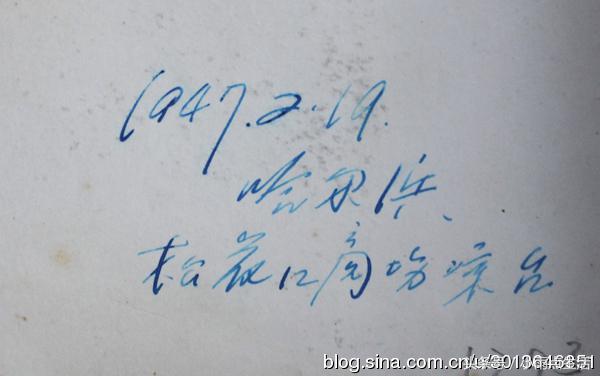 1947.2.19.
哈尔滨
松花江商场凉台
blog.sina.com.cn/u/2013646851